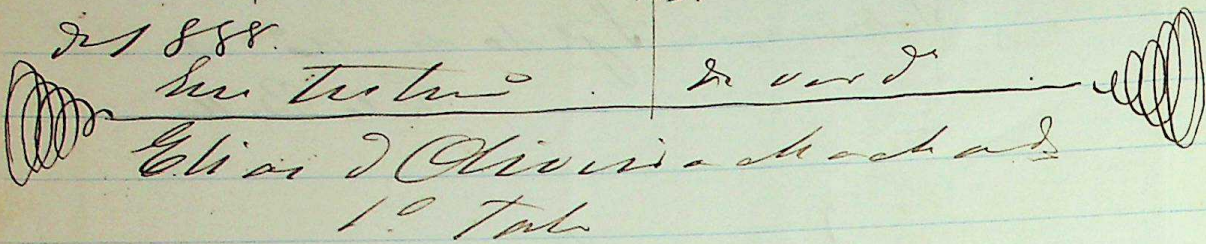 de 1888.
Em testmo de verde
Elias d'Oliveira Machado
1º Tab